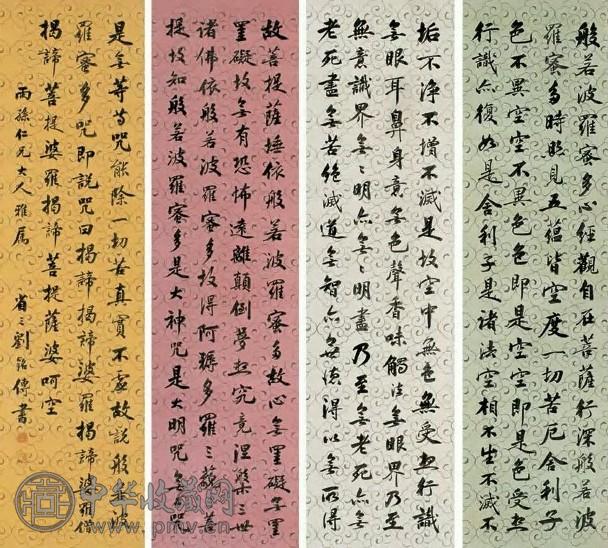 般若波羅蜜多心經觀自在菩薩行深般若波
羅蜜多時照見五蘊皆空度一切苦厄舍利子
色不異空空不異色色即是空空即是色受想
行識亦復如是舍利子是諸法空相不生不滅不
垢不淨不增不滅是故空中無色無受想行識
無眼耳鼻身意無色聲香味觸法無眼界乃至
無意識界無々明亦無々明盡乃至無老死亦無
老死盡無苦絕滅道無智亦無德得以無所得
故菩提薩埵依般若波羅蜜多故心無罣礙無罣
罣礙故無有恐怖遠離顛倒夢想究竟涅槃三世
諸佛依般若波羅蜜多故得阿耨多羅三藐菩
提故知般若波羅蜜多是大神咒是大明咒無上咒
是無等等咒能除一切苦真實不虛故說般若波
羅蜜多咒即說咒曰揭諦揭諦婆羅揭諦婆羅僧
揭諦菩提婆羅揭諦菩提薩婆呵空
雨孫仁兄大人雅屬
省三劉銘傳書
中华收藏网
www.pmv.cn